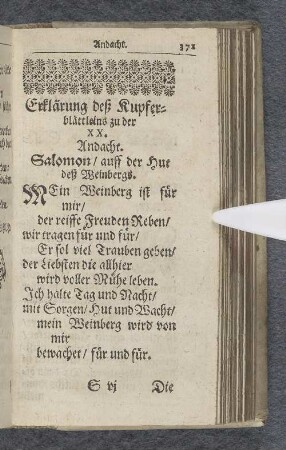 Andacht. 371
Erklärung deß Kupfer-
blättleins zu der
XX.
Andacht.
Salomon / auff der Hut
deß Weinbergs.
MEin Weinberg ist für
mir /
der reiffe Freuden Reben /
wir tragen für und für /
Er sol viel Trauben geben /
der Liebsten die allhier
wird voller Mühe leben.
Ich halte Tag und Nacht /
mit Sorgen / Hut und Wacht /
mein Weinberg wird von
mir
bewachet / für und für.
S vj Die